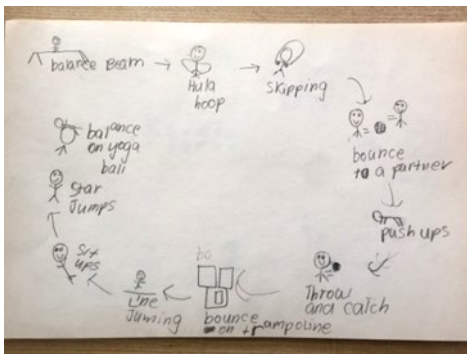 balance Beam
Hula
hoop
Skipping
bounce
to a partner
push ups
Throw
and catch
bo
bounce
on trampoline
Line
Juming
Sit
ups
Star
Jumps
balance
on yoga
ball